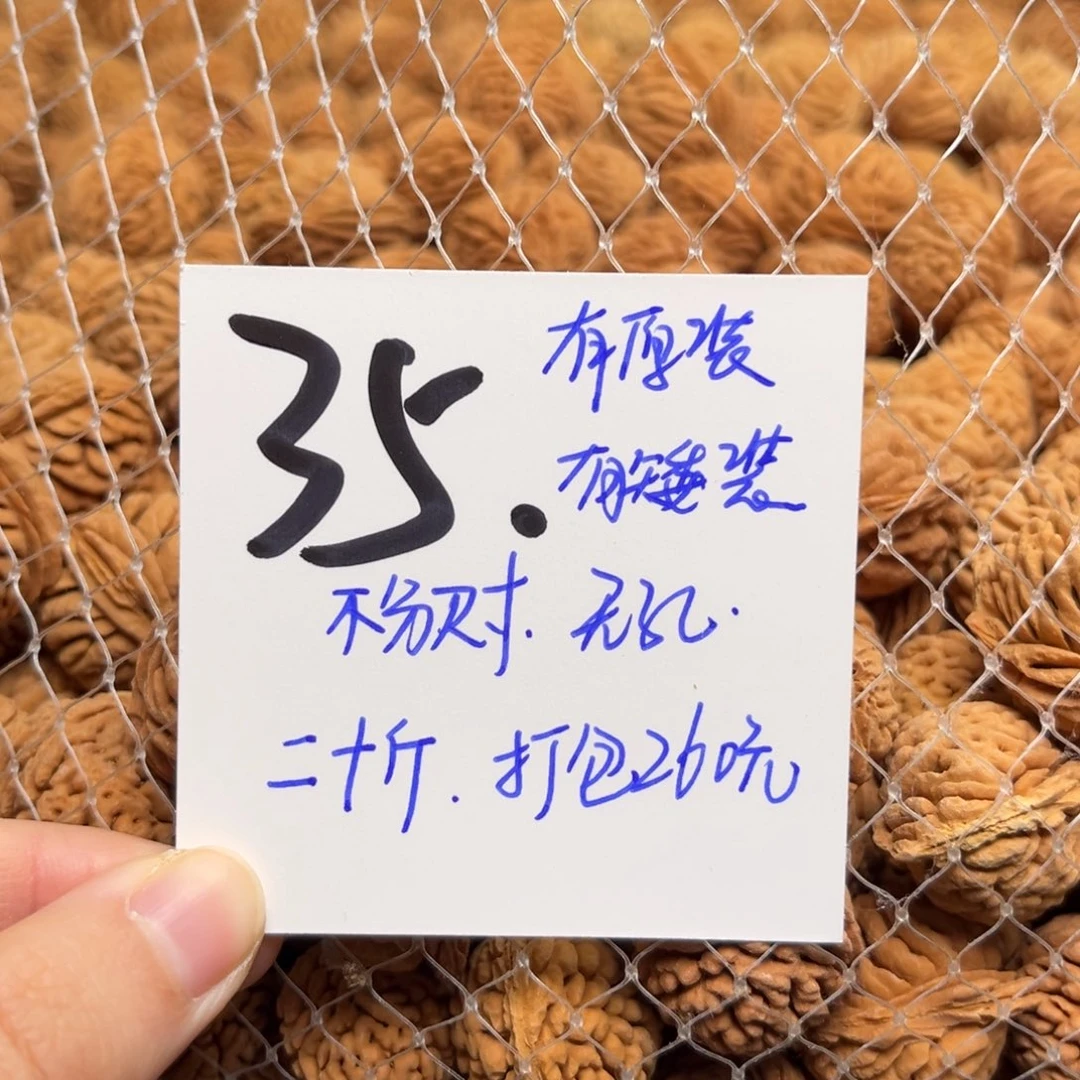 35.
有原装
有矮装
不分对. 无孔.
二十斤. 打包260元